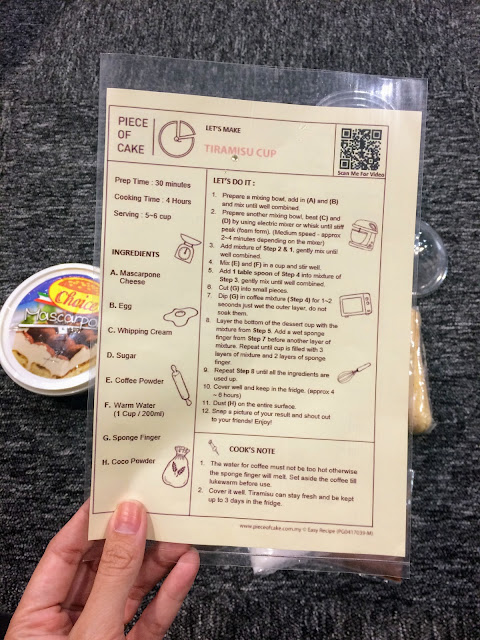 PIECE
OF
CAKE
LET'S MAKE
TIRAMISU CUP
Scan Me For Video
Prep Time : 30 minutes
Cooking Time : 4 Hours
Serving : 5~6 cup
INGREDIENTS
A. Mascarpone
Cheese
B. Egg
C. Whipping Cream
D. Sugar
E. Coffee Powder
F. Warm Water
(1 Cup / 200ml)
G. Sponge Finger
H. Coco Powder
LET'S DO IT :
1. Prepare a mixing bowl, add in (A) and (B)
and mix until well combined.
2. Prepare another mixing bowl, beat (C) and
(D) by using electric mixer or whisk until stiff
peak (foam form). (Medium speed - approx
2~4 minutes depending on the mixer)
3. Add mixture of Step 2 & 1, gently mix until
well combined.
4. Mix (E) and (F) in a cup and stir well.
5. Add 1 table spoon of Step 4 into mixture of
Step 3, gently mix until well combined.
6. Cut (G) into small pieces.
7. Dip (G) in coffee mixture (Step 4) for 1~2
seconds just wet the outer layer, do not
soak them.
8. Layer the bottom of the dessert cup with the
mixture from Step 5. Add a wet sponge
finger from Step 7 before another layer of
mixture. Repeat until cup is filled with 3
layers of mixture and 2 layers of sponge
finger.
9. Repeat Step 8 until all the ingredients are
used up.
10. Cover well and keep in the fridge. (approx 4
~ 6 hours)
11. Dust (H) on the entire surface.
12. Snap a picture of your result and shout out
to your friends! Enjoy!
COOK'S NOTE
1. The water for coffee must not be too hot otherwise
the sponge finger will melt. Set aside the coffee till
lukewarm before use.
2. Cover it well. Tiramisu can stay fresh and be kept
up to 3 days in the fridge.
www.pieceofcake.com.my © Easy Recipe (PG0417039-M)
Choice
Mascarpo